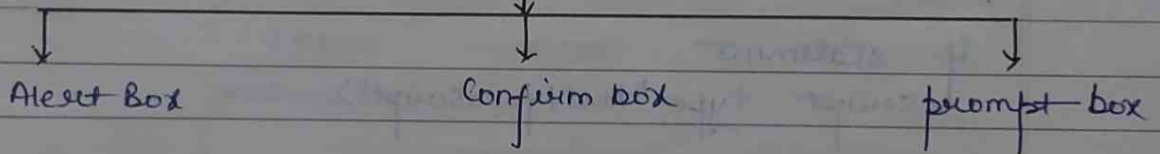 Alert Box Confirm box prompt box